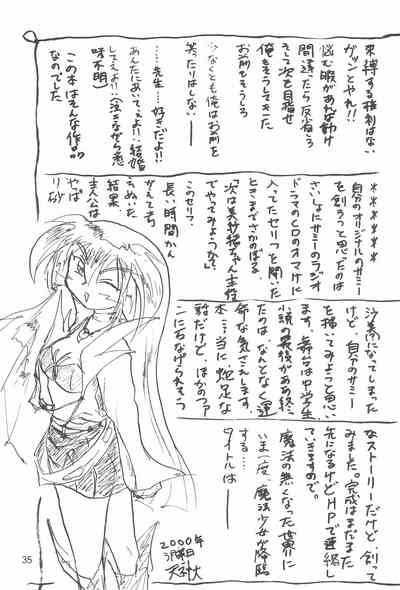 束縛する権利はない
ガツンとやれ!!
悩む暇があれば動け
間違ったら反省しろ
そして次を目指せ
俺もそうしてきた
お前もそうしろ
少なくとも俺はお前を
笑たりはしない――
……先生…好きだよ!!
あんたにおいでっよ!!結婚
してえよ!!(泣きながら意
味不明)
この本はそんな作品
なのでした
*****
自分のオリジナルのサミー
を創ろうと思ったのは
さいしょにサミーのラジオ
ドラマのCDのオマケに
入ってたセリフを聞いた
ときまでさかのぼる。
「次は美紗ちゃん主役
でやってみようか?」
このセリフ、
長い時間かん
がえてもち
ちぬいた
結果、
主人公は
やっぱ
り紗
沙美になってしまった
けど、自分のサミー
を描いてみようと思い
ます。舞台は中学生
小題の最後がああ終っ
たのは、なんとなく運
命な気さえします。
本…当に蛇足な
話だけど、ほかのファ
ンに石なげられそう
なストーリーだけど創って
みました。完成はまだまだ
先になるけどHPで連続し
ていきますので。
魔法の無くなった世界に
いま一度、魔法少女が降臨
する…
タイトルは――
2000年
3月某日
35